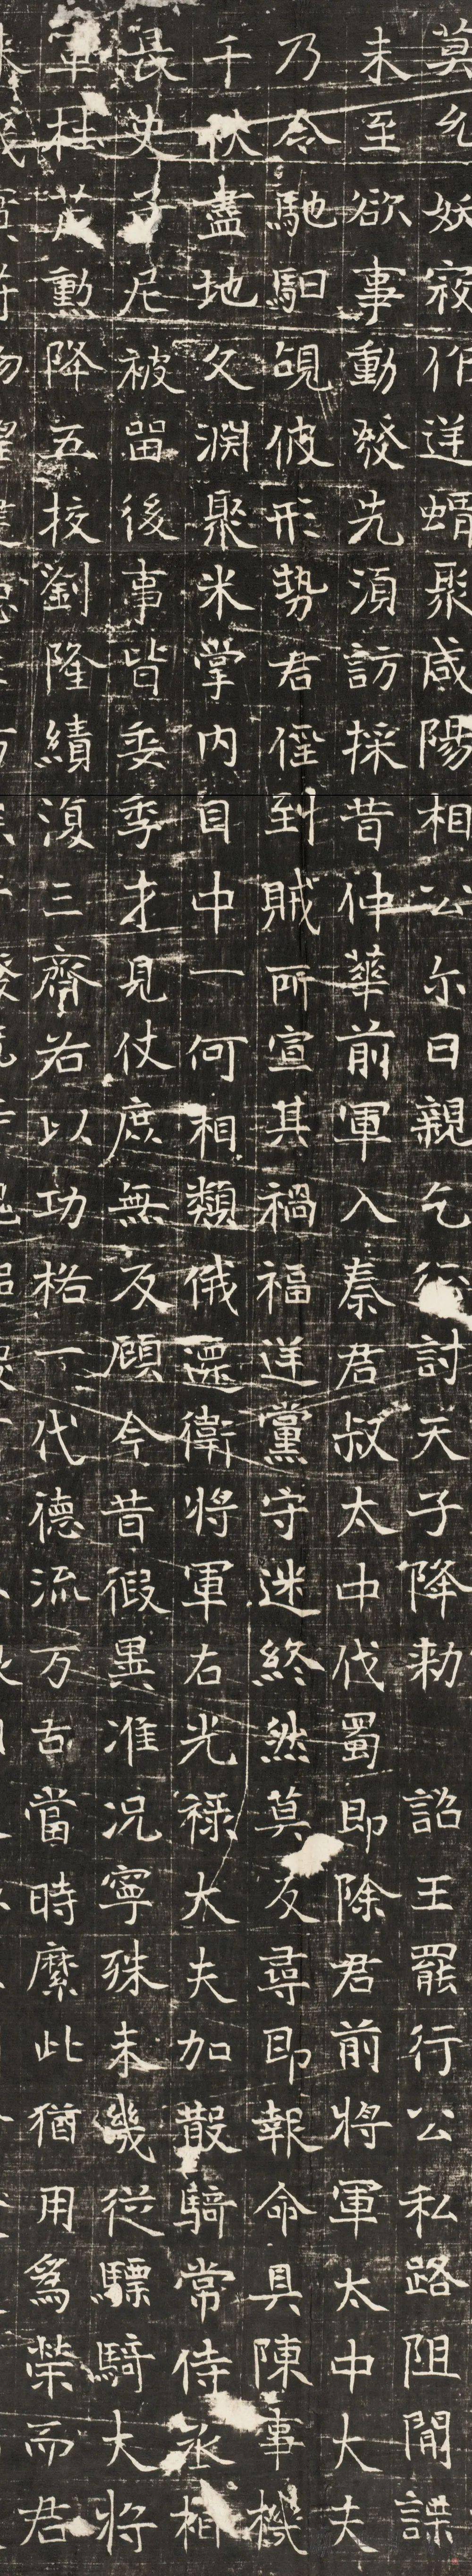 莫允妖寇作逆蝟聚咸陽相公尒日親乞行討天子降勑詔王羆行公私路阻間諜
未至欲事動發先須訪採昔仲華前軍入秦君叔太中伐蜀即除君前將軍太中大夫
乃令馳馹覘彼形勢君徑到賊所宣其禍福逆黨守迷終然莫反尋即報命具陳事機
千伏盡地久淵聚米掌内目中一何相類俄還衛將軍右光禄大夫加散騎常侍丞相
長史尼被留後事皆委季才見仗庶無反顧今昔假異准況寧殊未幾從驃騎大將
軍杜茂勳降五校劉隆績復三齊右以功格一代德流万古當時縻此猶用為榮而君